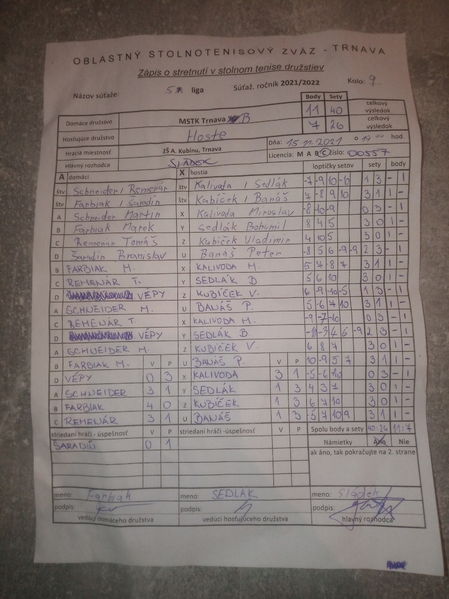 OBLASTNÝ STOLNOTENISOVÝ ZVÄZ - TRNAVA
Zápis o stretnutí v stolnom tenise družstiev
Názov súťaže: 5. liga Súťaž. ročník 2021/2022 Kolo: 9
Body Sety
Domáce družstvo MSTK Trnava B 11 40 celkový výsledok
Hosťujúce družstvo Hoste 7 26 celkový výsledok
Hracia miestnosť ZŠ A. Kubinu, Trnava Dňa: 15.11.2021 o hod.
Hlavný rozhodca Licencia: M A B C číslo: 00557
A domáci X hostia loptičky setov sety body
štv Schneider / Remenár štv Kalivoda / Sedlák 1 3 - 1
štv Farbiak / Šaradin štv Kubíček / Banáš 3 1 1 -
A Schneider Martin X Kalivoda Miroslav 0 3 - 1
B Farbiak Marek Y Sedlák Bohumil 8 4 5 3 0 1 -
C Remenár Tomáš Z Kubíček Vladimír 4 10 5 3 0 1 -
D Šaradin Branislav U Banáš Peter 2 3 - 1
B FARBIAK M. X KALIVODA M. 3 1 1 -
C REMENÁR T. Y SEDLÁK B. 5 6 10 3 0 1 -
D VÉPY Z KUBÍČEK V. 1 3 - 1
A SCHNEIDER M. U BANÁŠ P. 3 1 1 -
C REMENÁR T. X KALIVODA M. -9 -7 -10 0 3 - 1
D VÉPY Y SEDLÁK B. 2 3 - 1
A SCHNEIDER M. Z KUBÍČEK V. 6 8 7 3 0 1 -
B FARBIAK M. V P U BANÁŠ P. V P 10 -9 5 7 3 1 1 -
D VÉPY 0 3 X KALIVODA 3 1 -5 -6 -10 0 3 - 1
A SCHNEIDER 3 1 Y SEDLÁK 1 3 3 0 1 -
B FARBIAK 4 0 Z KUBÍČEK 1 3 6 7 10 3 0 1 -
C REMENÁR 3 1 U BANÁŠ 1 3 3 1 1 -
striedaní hráči - úspešnosť V P striedaní hráči - úspešnosť V P Spolu body a sety 40:26 11:7
ŠARADIN 0 1 Námietky Áno Nie
ak áno, tak pokračujte na 2. strane
meno: Farbiak meno: SEDLÁK meno:
podpis: podpis: podpis:
vedúci domáceho družstva vedúci hosťujúceho družstva hlavný rozhodca